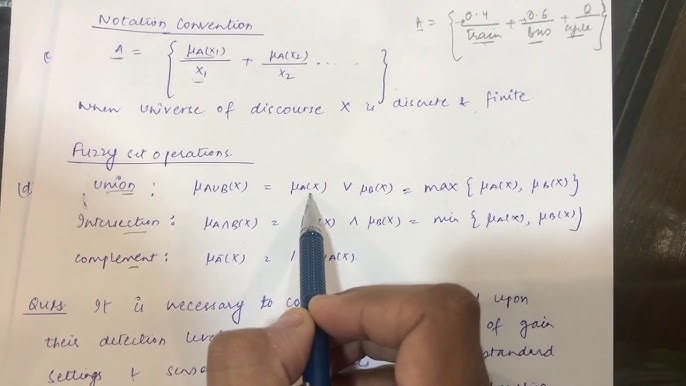 Notation Convention
A = { 0.4/Train + 0.6/bus + 0/cycle }
A = { μA(x1)/x1 + μA(x2)/x2 .... }
when universe of discourse X is discrete & finite.
Fuzzy set operations.
(d) union : μAUB(X) = μA(X) ∨ μB(X) = max { μA(X), μB(X) }
Intersection : μA∩B(X) = (X) ∧ μB(X) = min { μA(X), μB(X) }
complement : μĀ(X) = 1 μA(X).
Ques. It is necessary to co upon
their detection leve of gain
settings & senso standard